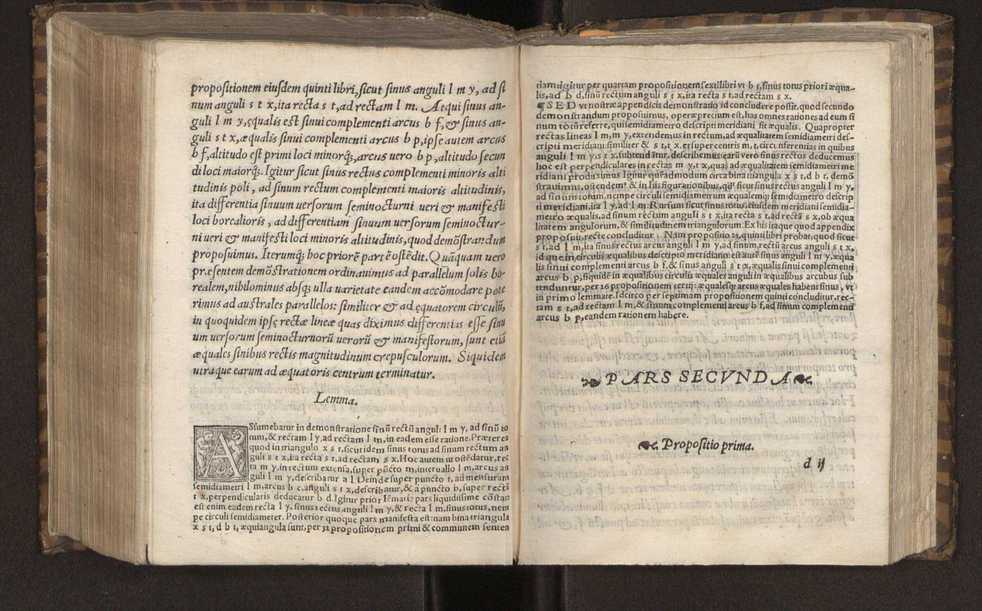 propositionem eiusdem quinti libri, sicut sinus anguli l m y, ad si
num anguli s t x, ita recta s t, ad rectam l m. Atqui sinus an-
guli l m y, equalis est sinui complementi arcus b f, & sinus an-
guli s t x, æqualis sinui complementi arcus b p, ipse autem arcus
b f, altitudo est primi loci minorq;, arcus uero b p, altitudo secun
di loci maiorq;. Igitur sicut sinus rectus complementi minoris alti
tudinis poli, ad sinum rectum complementi maioris altitudinis,
ita differentia sinuum uersorum seminocturni ueri & manifesti
loci borealioris, ad differentiam sinuum uersorum seminoctur-
ni ueri & manifesti loci minoris altitudinis, quod demõstrandum
proposuimus. Iterumq; hoc priorẽ partẽ ostẽdit. Quãquam uero
præsentem demõstrationem ordinauimus ad parallelum solis bo-
realem, nihilominus absq; ulla uarietate eandem accõmodare pote
rimus ad australes parallelos: similiter & ad equatorem circulũ,
in quo quidem ipsę rectæ lineæ quas diximus differentias esse sinu
um uersorum seminocturnorũ uerorũ & manifestorum, sunt etiã
æquales sinibus rectis magnitudinum crepusculorum. Siquidem
utraque earum ad æquatoris centrum terminatur.
Lemma.
ASsumebatur in demonstratione sinũ rectũ anguli l m y, ad sinũ to
tum, & rectam l y, ad rectam l m, in eadem esse ratione. Præterea
quod in triangulo x s t, sicut idem sinus totus ad sinum rectum an
guli s t x, ita recta s t, ad rectam s x. Hoc autem ut ostẽdatur, rec
ta m y, in rectum extensa, super pũcto m, interuallo l m, arcus an
guli l m y, describatur a l Deinde super puncto t, ad mensuram
semidiametri l m, arcus b c, anguli s t x, describatur, & à puncto b, super rectã
t x, perpendicularis deducatur b d. Igitur prior lẽmatis pars liquidissime cõstat
est enim eadem recta l y, sinus rectus anguli l m y, & recta l m, sinus totus, nem
pe circuli semidiameter. Posterior quoque pars manifesta est: nam bina triangula
x s t, d b t, æquiangula sunt, per 32 propositionem primi & communem senten
tiam: igitur per quartam propositionem sexti libri ut b t, sinus totus priori æqua-
lis, ad b d, sinũ rectum anguli s t x, ita recta s t, ad rectam s x.
¶SED ut nostræ appendicis demonstratio id concludere possit, quod secundo
demonstrandum proposuimus, operæprecium est, has omnes rationes ad eum si
num totũ referre, qui semidiametro descripti meridiani sit æqualis. Quapropter
rectas lineas l m, m y, extendemus in rectum, ad æqualitatem semidiametri des-
cripti meridiani similiter & s t, t x, et super centris m, t, circũferentias in quibus
anguli l m y, s t x, subtendũtur, describemus: earũ vero sinus rectos deducemus
hoc est perpendiculares in rectas m y, t x, quas ad æqualitatem semidiametri me
ridiani produximus Igitur quẽadmodum circa bina triãgula x s t, d b t, demõ
strauimus, ostendemꝰ & in suis figurationibus, qđ sicut sinus rectus anguli l m y,
ad sinum totum, nempe circuli semidiametrum æqualem semidiametro descrip
ti meridiani, ita l y, ad l m. Rursum sicut sinus totus, eiusdem meridiani semidia-
metro æqualis, ad sinum rectum anguli s t x, ita recta s t, ad rectã s x, ob æqua
litatem angulorum, & similitudinem triangulorum. Ex his itaque quod appendix
proposuit, recte concluditur. Nam propositio 23, quinti libri probat, quod sicut
s t, ad l m, ita sinus rectus arcus anguli l m y, ad sinum, rectũ arcus anguli s t x,
id que in, circulis æqualibus descripto meridiano: est aut̃ sinus anguli l m y, æqua
lis sinui complementi arcus b f, & sinus anguli s t x, æqualis sinui complementi
arcus b p, siquidẽ in æqualibus circulis æquales anguli in æqualibus arcubus sub
tenduntur, per 26 propositionem tertij: æqualesq; arcus æquales habent sinus, ut
in primo lemmate. Idcirco per septimam propositionem quinti concluditur, rec-
tam s t, ad rectam l m, & sinum, complementi arcus b f, ad sinum complementi
arcus b p, eandem rationem habere.
PARS SECVNDA
Propositio prima.
d ij